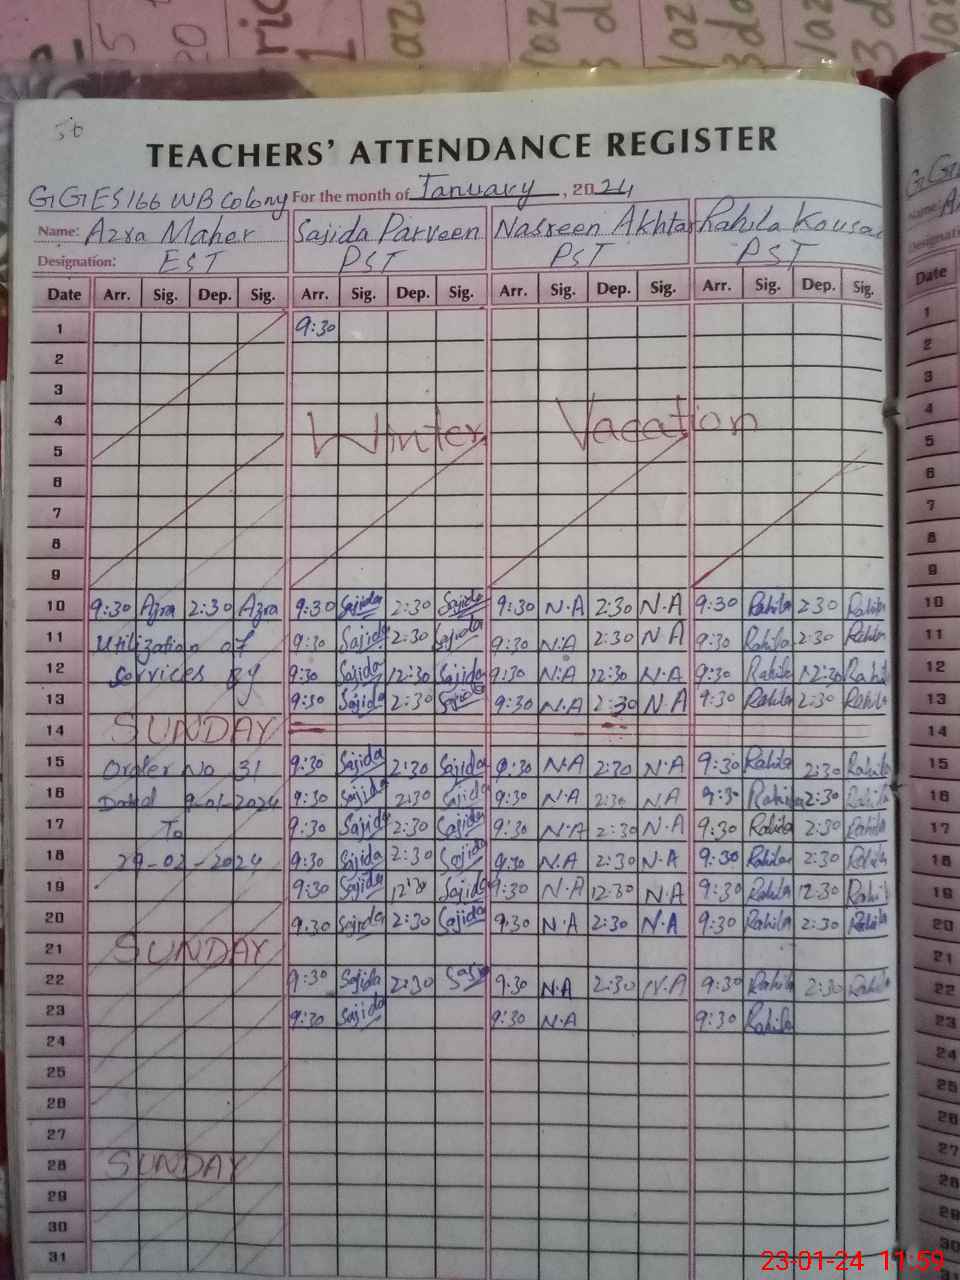 56
TEACHERS' ATTENDANCE REGISTER
GGES 166 WB Colony For the month of January, 2024
Name: Azra Maher Sajida Parveen Nasreen Akhtar Rahila Kousar
Designation: EST PST PST PST
Date Arr. Sig. Dep. Sig. Arr. Sig. Dep. Sig. Arr. Sig. Dep. Sig. Arr. Sig. Dep. Sig. Date
1 9:30 1
2 2
3 3
4 Winter Vacation 4
5 5
6 6
7 7
8 8
9 9
10 9:30 Azra 2:30 Azra 9:30 Sajida 2:30 Sajida 9:30 N.A 2:30 N.A 9:30 Rahila 2:30 Rahila 10
11 Utilization of 9:30 Sajida 2:30 Sajida 9:30 N.A 2:30 N.A 9:30 Rahila 2:30 Rahila 11
12 services By 9:30 Sajida 12:30 Sajida 9:30 N.A 12:30 N.A 9:30 Rahila 12:30 Rahila 12
13 9:30 Sajida 2:30 Sajida 9:30 N.A 2:30 N.A 9:30 Rahila 2:30 Rahila 13
14 SUNDAY 14
15 Order No 31 9:30 Sajida 2:30 Sajida 9:30 N.A 2:30 N.A 9:30 Rahila 2:30 Rahila 15
16 Dated 9-01-2024 9:30 Sajida 2:30 Sajida 9:30 N.A 2:30 N.A 9:30 Rahila 2:30 Rahila 16
17 To 9:30 Sajida 2:30 Sajida 9:30 N.A 2:30 N.A 9:30 Rahila 2:30 Rahila 17
18 29-02-2024 9:30 Sajida 2:30 Sajida 9:30 N.A 2:30 N.A 9:30 Rahila 2:30 Rahila 18
19 9:30 Sajida 12:30 Sajida 9:30 N.A 12:30 N.A 9:30 Rahila 12:30 Rahila 19
20 9:30 Sajida 2:30 Sajida 9:30 N.A 2:30 N.A 9:30 Rahila 2:30 Rahila 20
21 SUNDAY 21
22 9:30 Sajida 2:30 9:30 N.A 2:30 N.A 9:30 Rahila 2:30 Rahila 22
23 9:30 Sajida 9:30 N.A 9:30 Rahila 23
24 24
25 25
26 26
27 27
28 SUNDAY 28
29 29
30 30
31
23-01-24 11:59